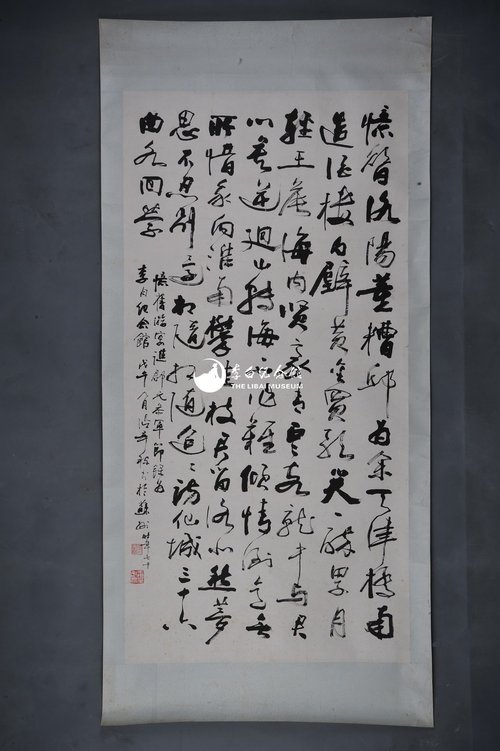 憶昔洛陽董糟邱為余天津橋南
造酒樓白璧黃金買歌笑一醉累月
輕王侯海內賢豪青雲客就中與君
心莫逆迴山轉海不作難傾情倒意無
所惜我向淮南攀桂枝君留洛北愁夢
思不忍別還相隨相隨迢迢訪仙城三十六
曲水回縈
憶舊游寄譙郡元參軍節録為
李白紀念館 戊午八月 於蘇州時年七十
李白紀念館
THE LIBAI MUSEUM